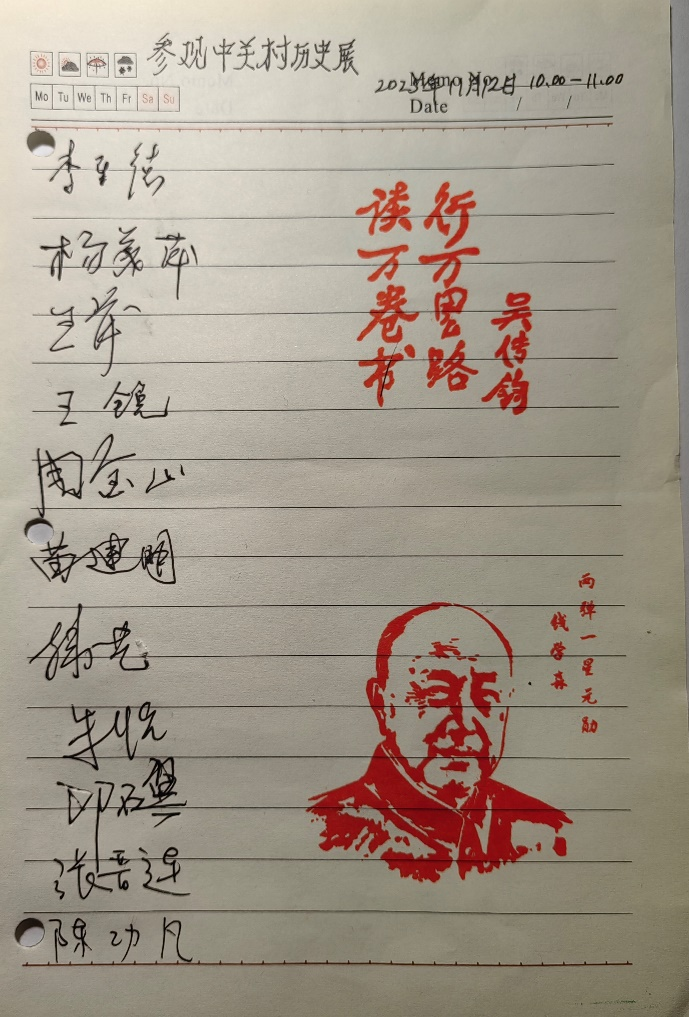 参观中关村历史展
Memo No.
2023年11月12日 10.00-11.00
Date / /
Mo Tu We Th Fr Sa Su
李
杨
王
王镜
周金山
苗建明
朱忱
张晋连
陈功凡
读万卷书
行万里路
吴传钧
两弹一星元勋
钱学森